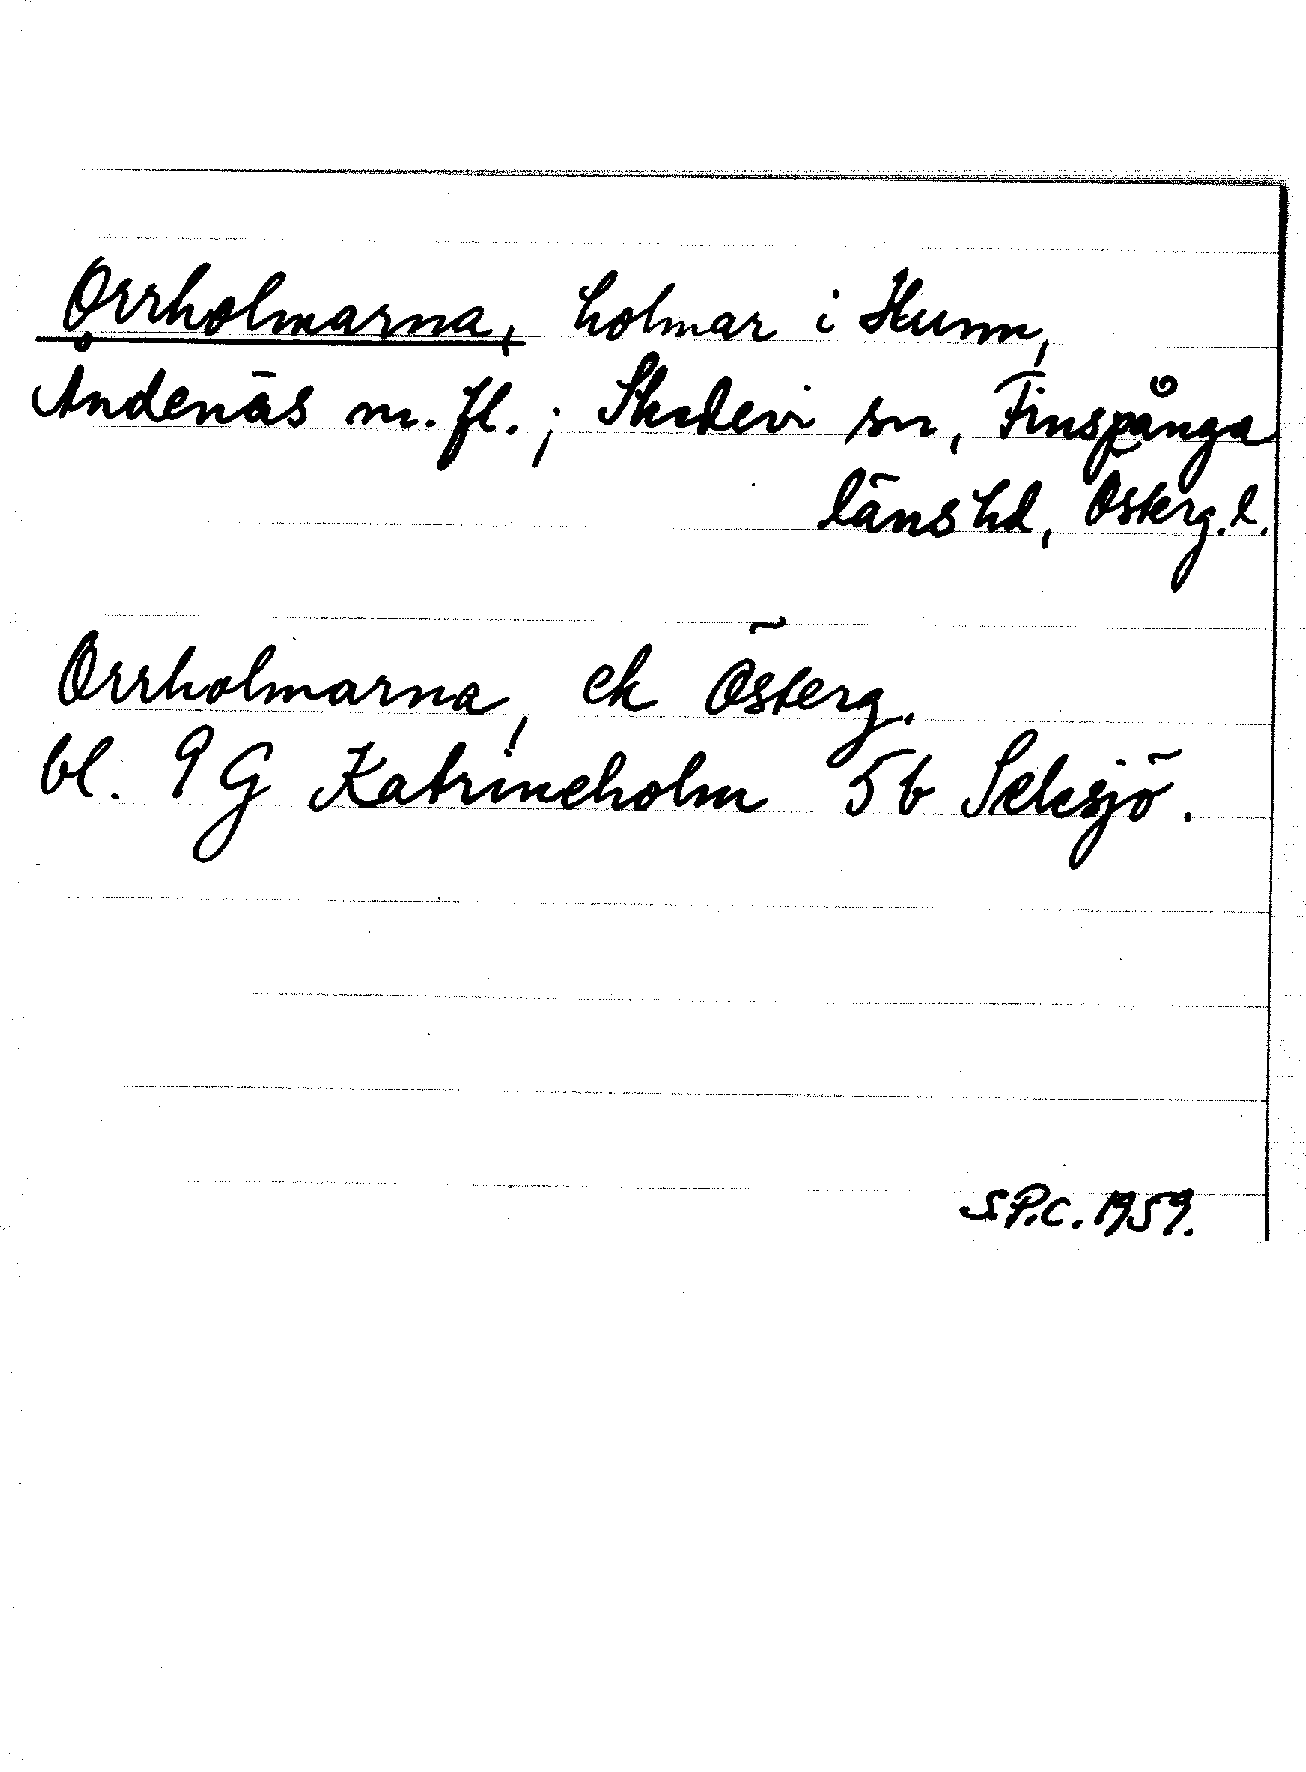 Orrholmarna, holmar i Hunn,
Åndenäs m. fl.; Skedevi sn, Finspånga
länshd, Österg. l.
Orrholmarna, ek Österg.
bl. 9 G Katrineholm 5b Seksjö.
S.P.C. 1959.